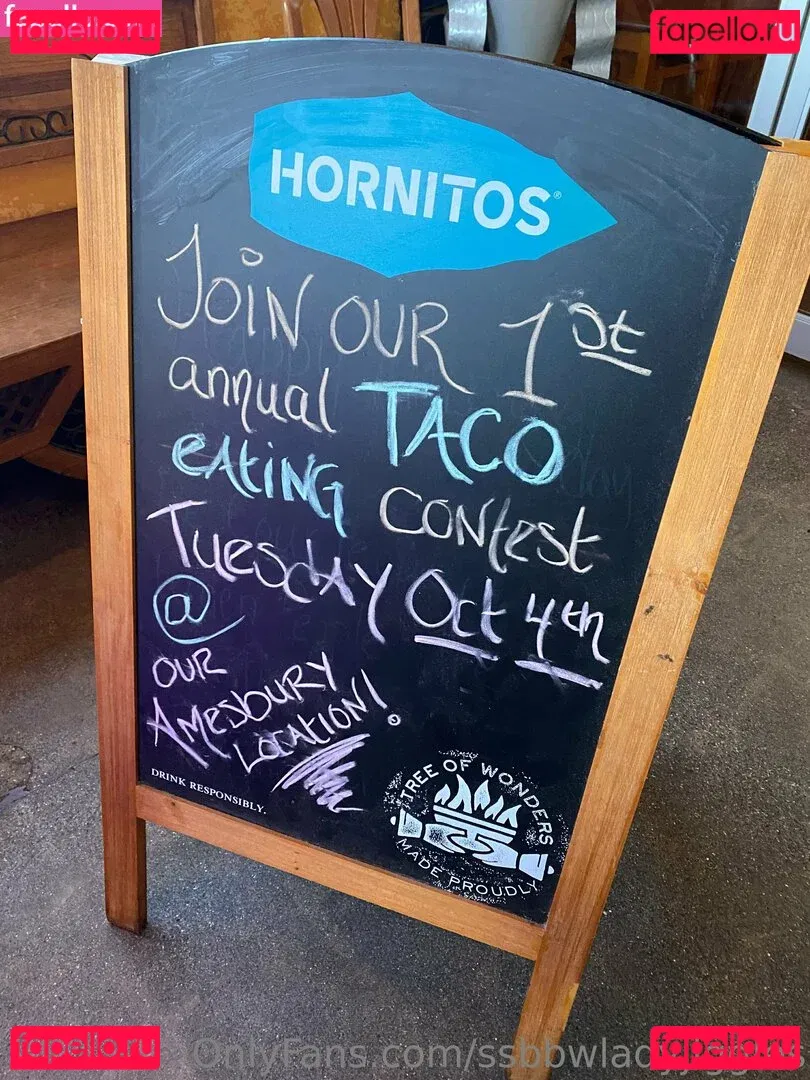 fapello.ru
fapello.ru
HORNITOS®
JOIN OUR 1st
annual TACO
EATING CONtest
TUESDAY Oct 4th
@
OUR
AMESBURY
LOCATION!
DRINK RESPONSIBLY.
TREE OF WONDERS
MADE PROUDLY
fapello.ru
fapello.ru